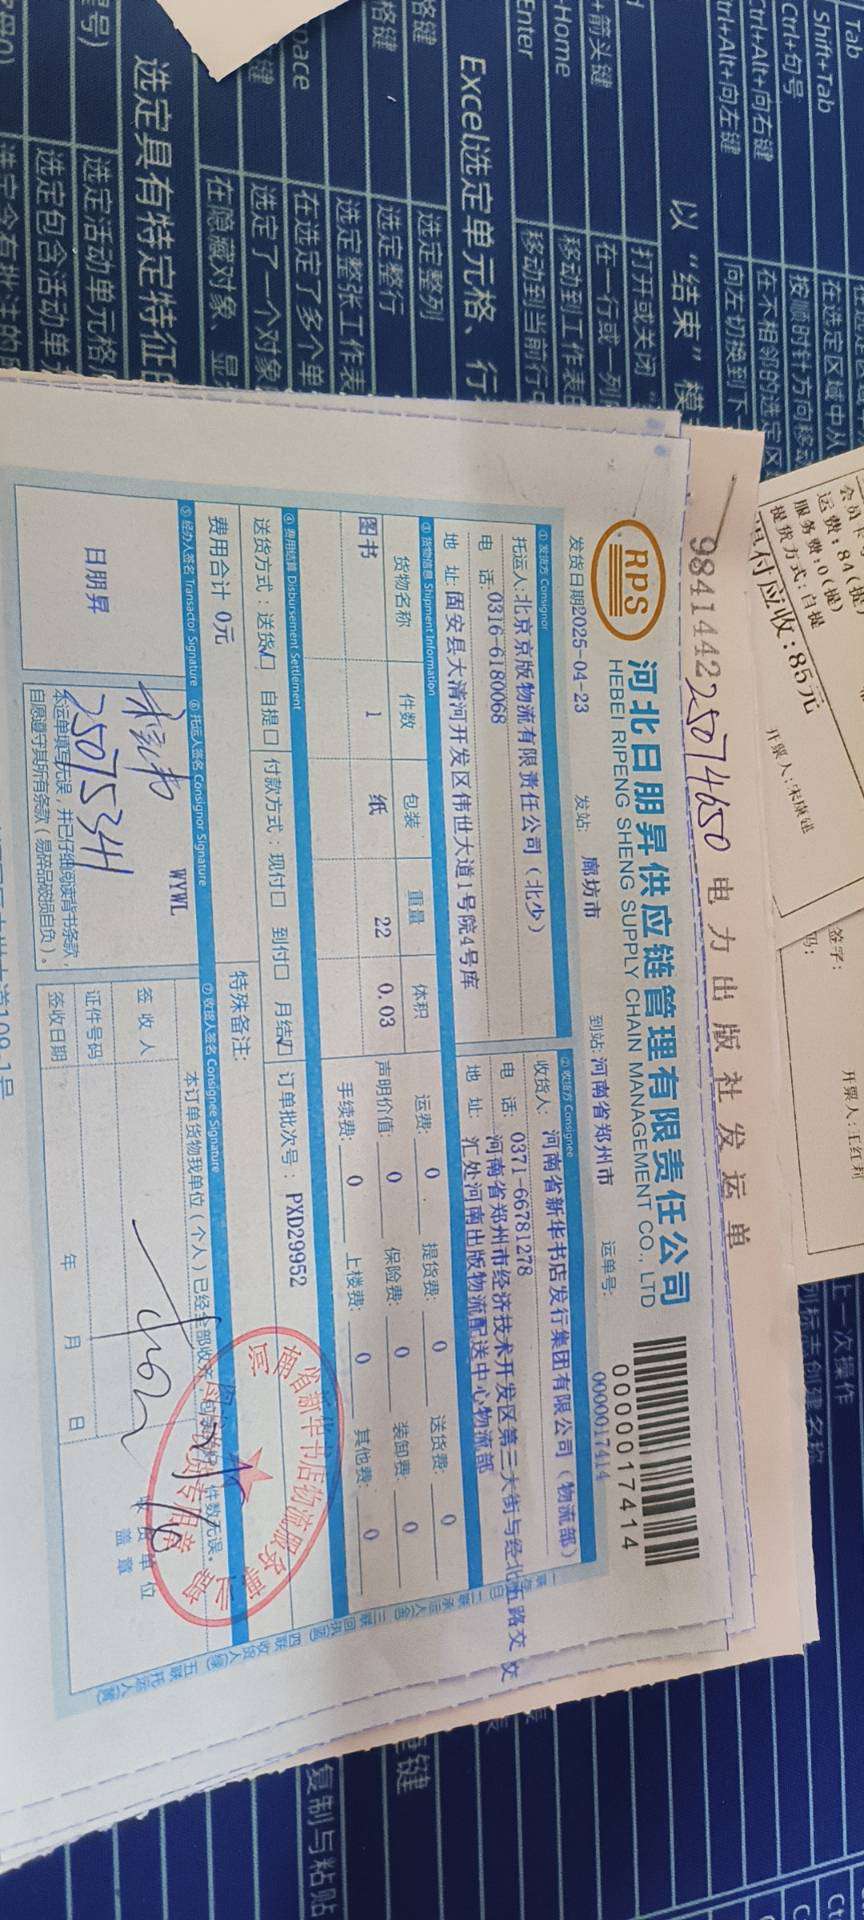 984144225074650 电力出版社发运单
RPS
河北日朋昇供应链管理有限责任公司
HEBEI RIPENG SHENG SUPPLY CHAIN MANAGEMENT CO., LTD
0000017414
发货日期2025-04-23 发站: 廊坊市 到站: 河南省郑州市 运单号: 0000017414
① 发货方 Consignor
托运人: 北京京版物流有限责任公司（北少）
电 话: 0316-6180068
地 址: 固安县大清河开发区伟世大道1号院4号库
② 收货方 Consignee
收货人: 河南省新华书店发行集团有限公司（物流部）
电 话: 0371-66781278
地 址: 河南省郑州市经济技术开发区第三大街与经北五路交 交
汇处河南出版物流配送中心物流部
③ 货物信息 Shipment Information
货物名称 件数 包装 重量 体积
图书 1 纸 22 0.03
运费: 0 提货费: 0 送货费: 0
声明价值: 0 保险费: 0 装卸费: 0
手续费: 0 上楼费: 0 其他费: 0
④ 费用结算 Disbursement Settlement
送货方式: 送货☑ 自提☐ 付款方式: 现付☐ 到付☐ 月结☑ 订单批次号: PXD29952
费用合计 0元 特殊备注:
⑤ 经办人签名 Transactor Signature ⑥ 托运人签名 Consignor Signature ⑦ 收货人签名 Consignee Signature
日朋昇
WYWL
2507534
本运单填写无误，并已仔细阅读背书条款，
自愿遵守其所有条款（易碎品破损自负）。
本订单货物我单位（个人）已经全部收
件数无误。
签收人
证件号码
签收日期 年 月 日
单位
盖章
河南省新华书店物流服务
运费:84(提)
服务费:0(提)
提货方式:自提
付应收:85元
开票人:宋康健
签字:
开票人:王红利
Tab
Shift+Tab
Ctrl+句号
Ctrl+Alt+向右键
Ctrl+Alt+向左键
在选定区域中从
按顺时针方向移动
在不相邻的选定区
向左切换到下
以“结束”模
+箭头键
+Home
Enter
打开或关闭
在一行或一列
移动到工作表的
移动到当前行
Excel选定单元格、行
选定整列
选定整行
选定整张工作表
在选定了多个单
选定了一个对象
在隐藏对象、显
选定具有特定特征的
选定活动单元格
选定包含活动单
选定含有批注的
上一次操作
复制与粘贴